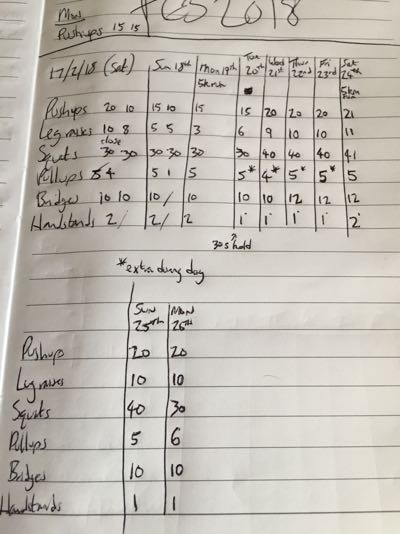 Mon
Pushups 15 15
FEB 2018
17/2/18 (Sat) Sun 18th Mon 19th Tue 20th Wed 21st Thur 22nd Fri 23rd Sat 24th
5km run 5km run
Pushups 20 10 15 10 15 15 20 20 20 21
Leg raises 10 8 5 5 3 6 9 10 10 11
close
Squats 30 30 30 30 30 30 40 40 40 41
Pullups 5 4 5 1 5 5* 4* 5* 5* 5
Bridges 10 10 10 / 10 10 10 12 12 12
Handstands 2 / 2 / 2 1 1 1 1 2
30s hold
*extra during day
Sun 25th Mon 26th
Pushup 20 20
Leg raises 10 10
Squats 40 30
Pullups 5 6
Bridges 10 10
Handstands 1 1